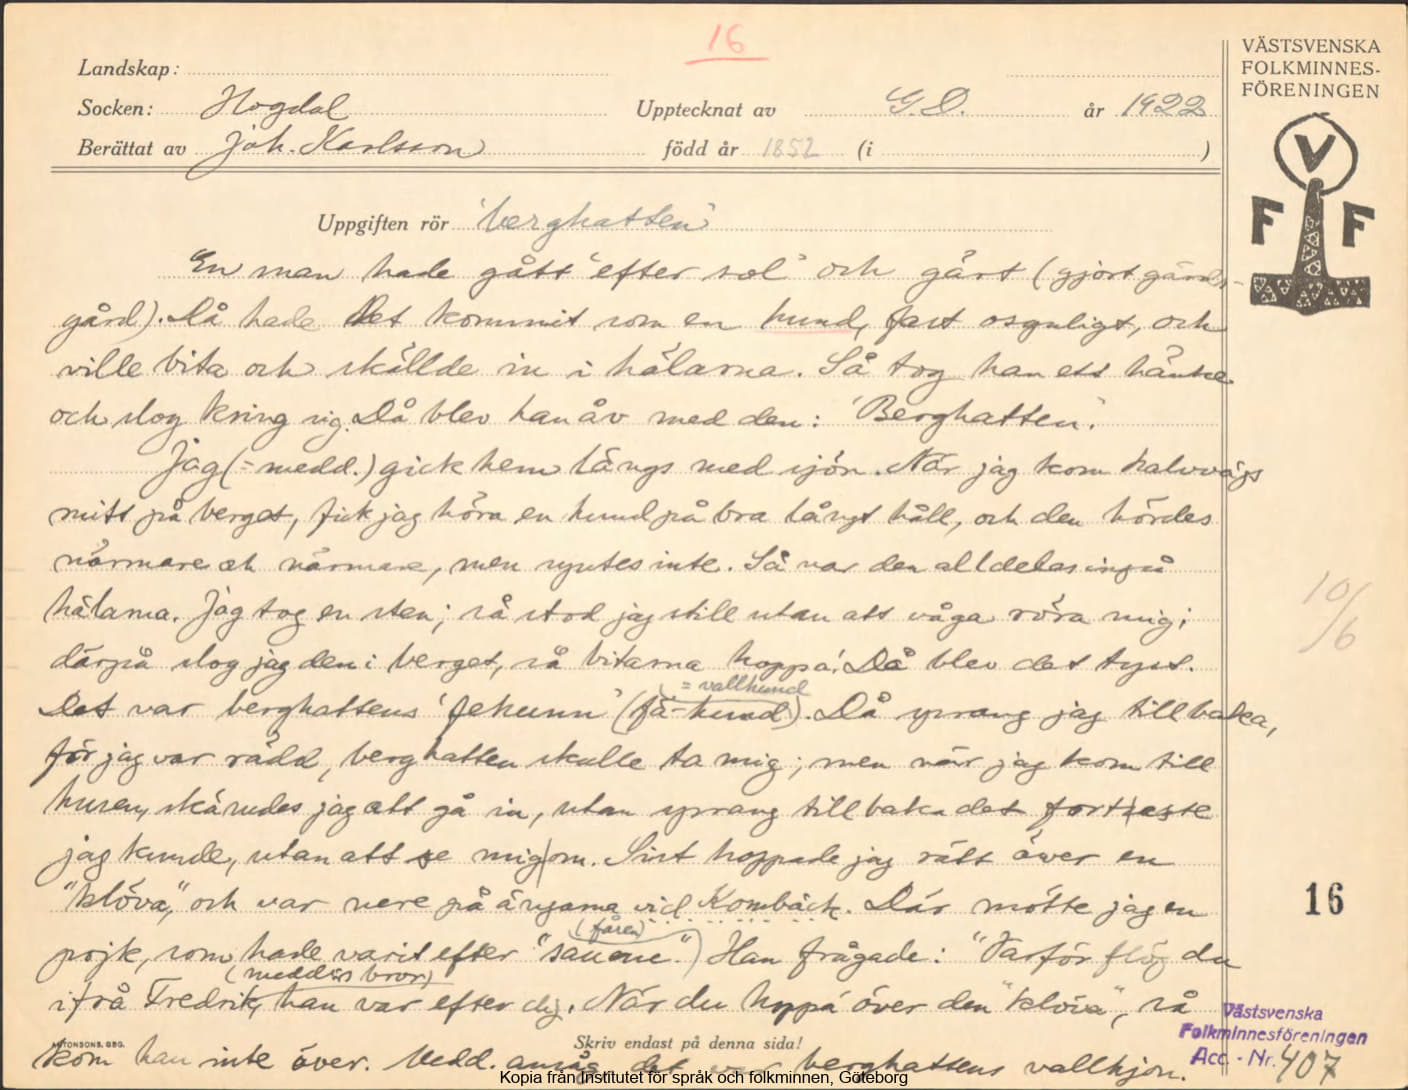 16
Landskap:
Socken: Hogdal Upptecknat av G.D. år 1922
Berättat av Joh. Karlsson född år 1852 (i )
VÄSTSVENSKA
FOLKMINNES-
FÖRENINGEN
V
F F
Uppgiften rör 'berghatten'
En man hade gått 'efter sol' och gärt (gjort gärds-
gård). Då hade det kommit som en hund, fast osynligt, och
ville bita och skällde in i hälarna. Så tog han ett
och slog kring sig. Då blev han åv med den: 'Berghatten'.
Jag (= medd.) gick hem längs med sjön. När jag kom halvvägs
mitt på berget, fick jag höra en hund på bra långt håll, och den hördes
närmare och närmare, men syntes inte. Så var den alldeles inpå
hälarna. Jag tog en sten; så stod jag still utan att våga röra mig;
därpå slog jag den i berget, så bitarna hoppa'. Då blev det tyst.
(= vallhund
Det var berghattens 'fehunn' (fä-hund). Då sprang jag tillbaka,
för jag var rädd, berghatten skulle ta mig; men när jag kom till
husen, skämdes jag att gå in, utan sprang tillbaka det fortaste
jag kunde, utan att se mig om. Sist hoppade jag rätt över en
"klöva", och var nere på ängarna vid Kombäck. Där mötte jag en
(fåren)
pojk, som hade varit efter "sauene". Han frågade: "Varför flög du
(medd:s bror)
ifrå Fredrik, han var efter dig. När du hoppa' över den "klöva", så
kom han inte över. Medd. ansåg det var berghattens vallhjon.
ANTONSONS, GBG.
Skriv endast på denna sida!
10/6
16
Västsvenska
Folkminnesföreningen
Acc.-Nr. 407
Kopia från Institutet för språk och folkminnen, Göteborg